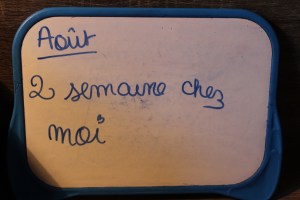 Août
2 semaine chez
moi